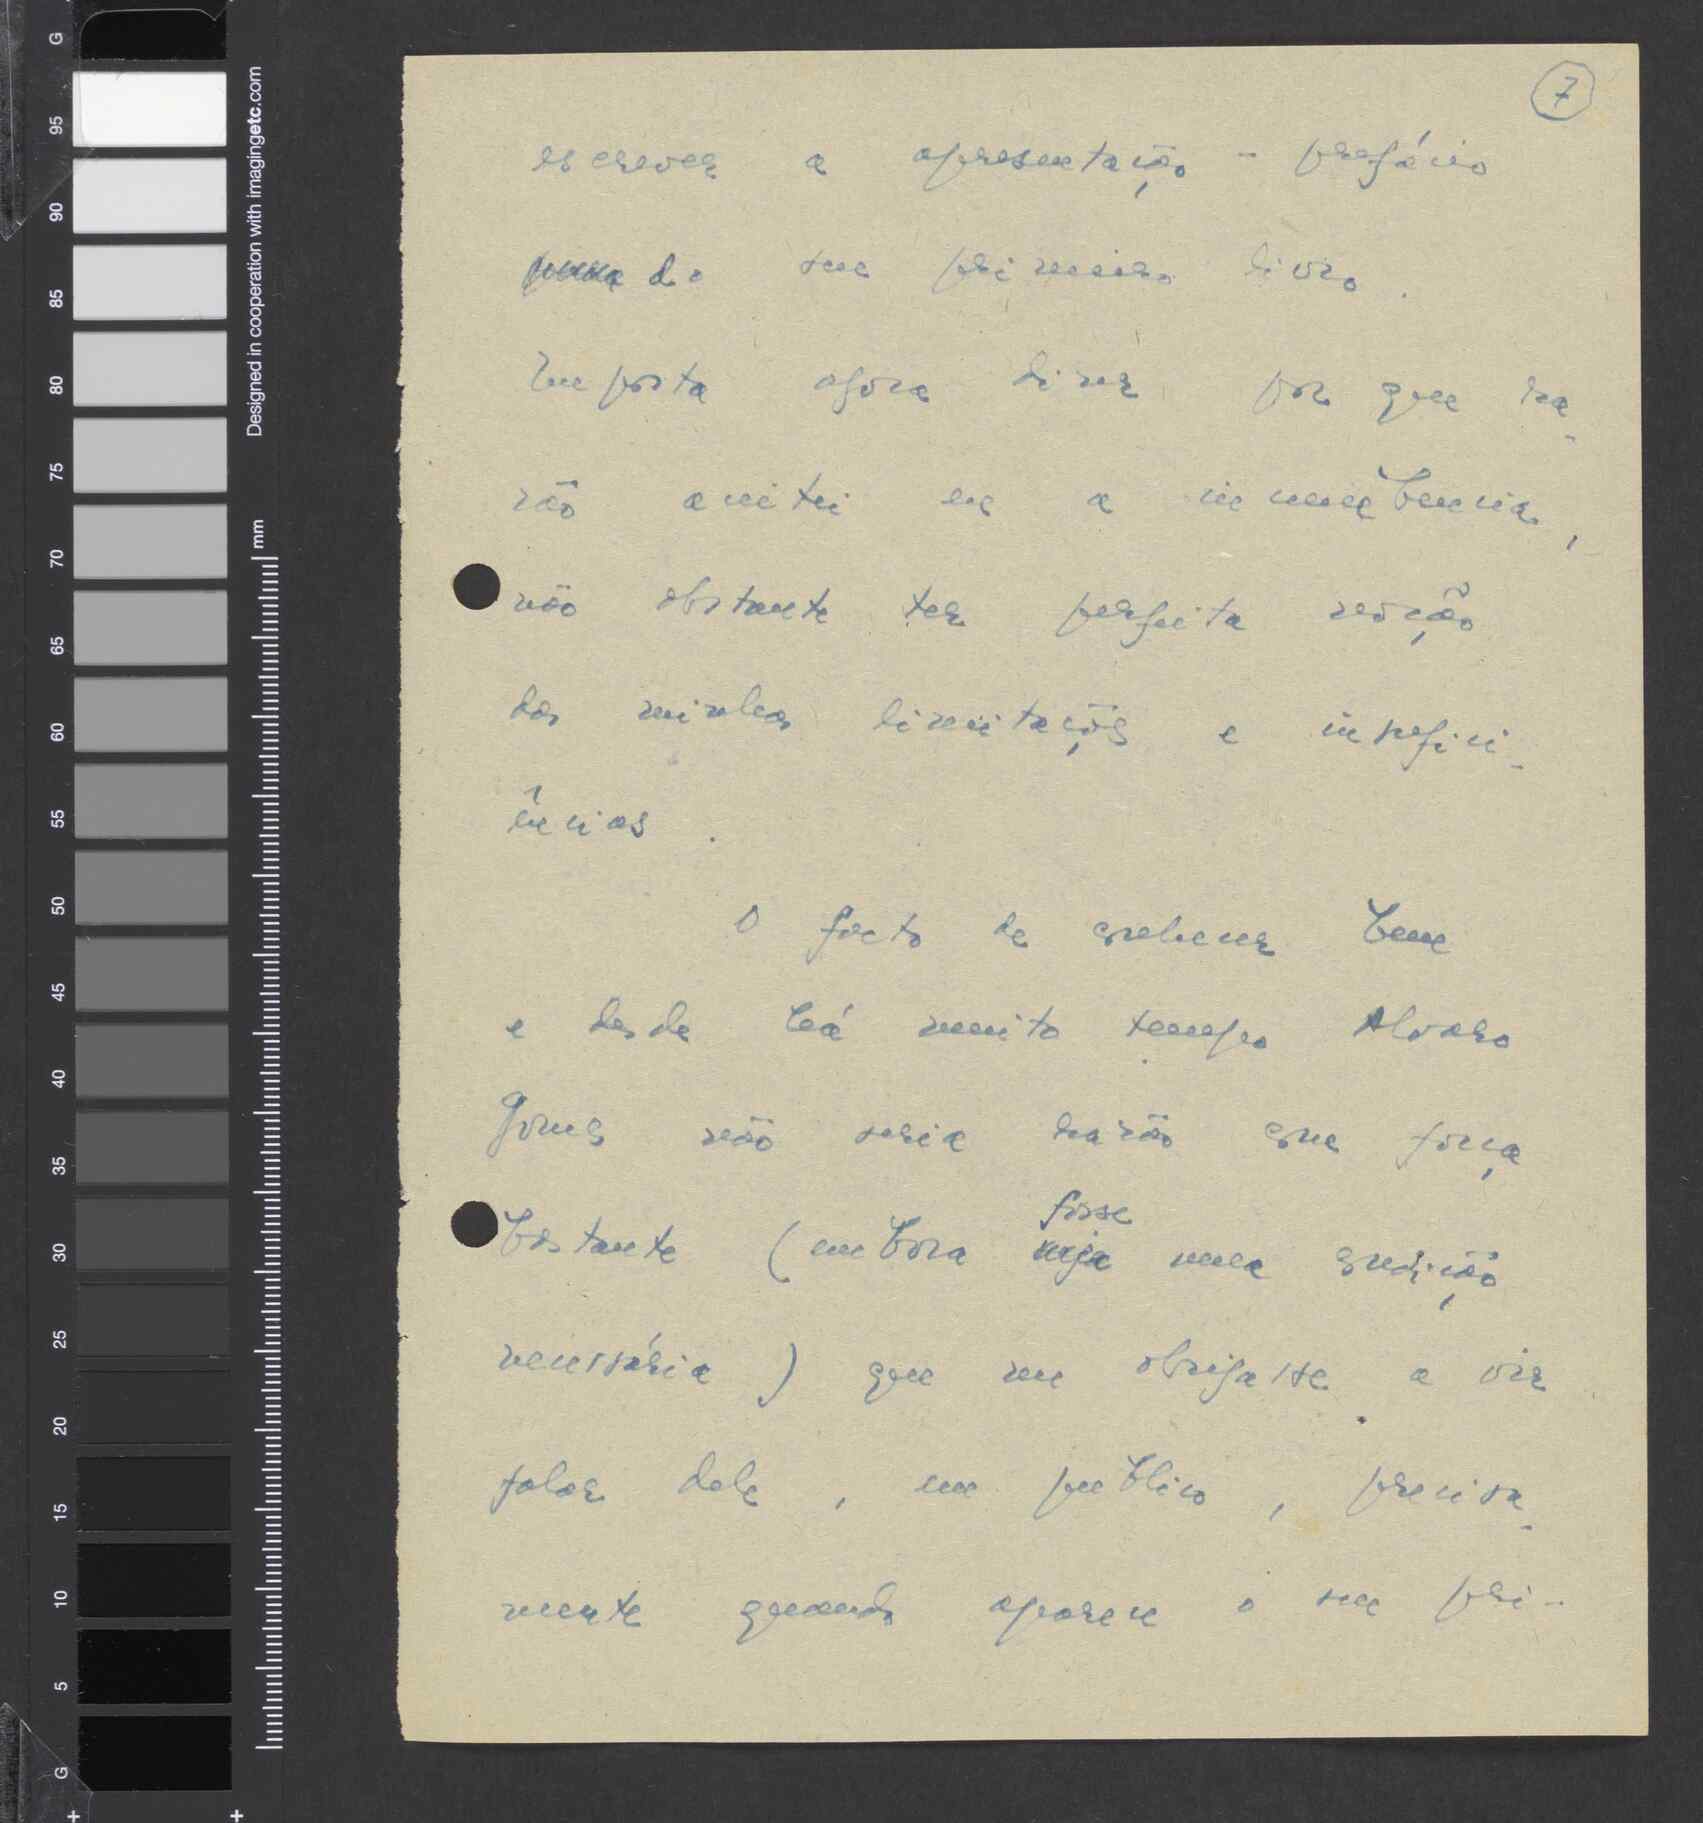 7
escrever a apresentação - prefácio
do seu primeiro livro.
Importa agora dizer por que ra-
zão aceitei eu a incumbência,
não obstante ter perfeita noção
das minhas limitações e insufici-
ências.
O facto de conhecer bem
e desde há muito tempo Alvaro
Gomes não seria razão com força
fosse
bastante (embora seja uma condição
necessária) que me obrigasse a vir
falar dele, em publico, precisa-
mente quando aparece o seu pri-
G
95
90
85
80
75
70
65
60
55
50
45
40
35
30
25
20
15
10
5
G
Designed in cooperation with imagingetc.com
mm